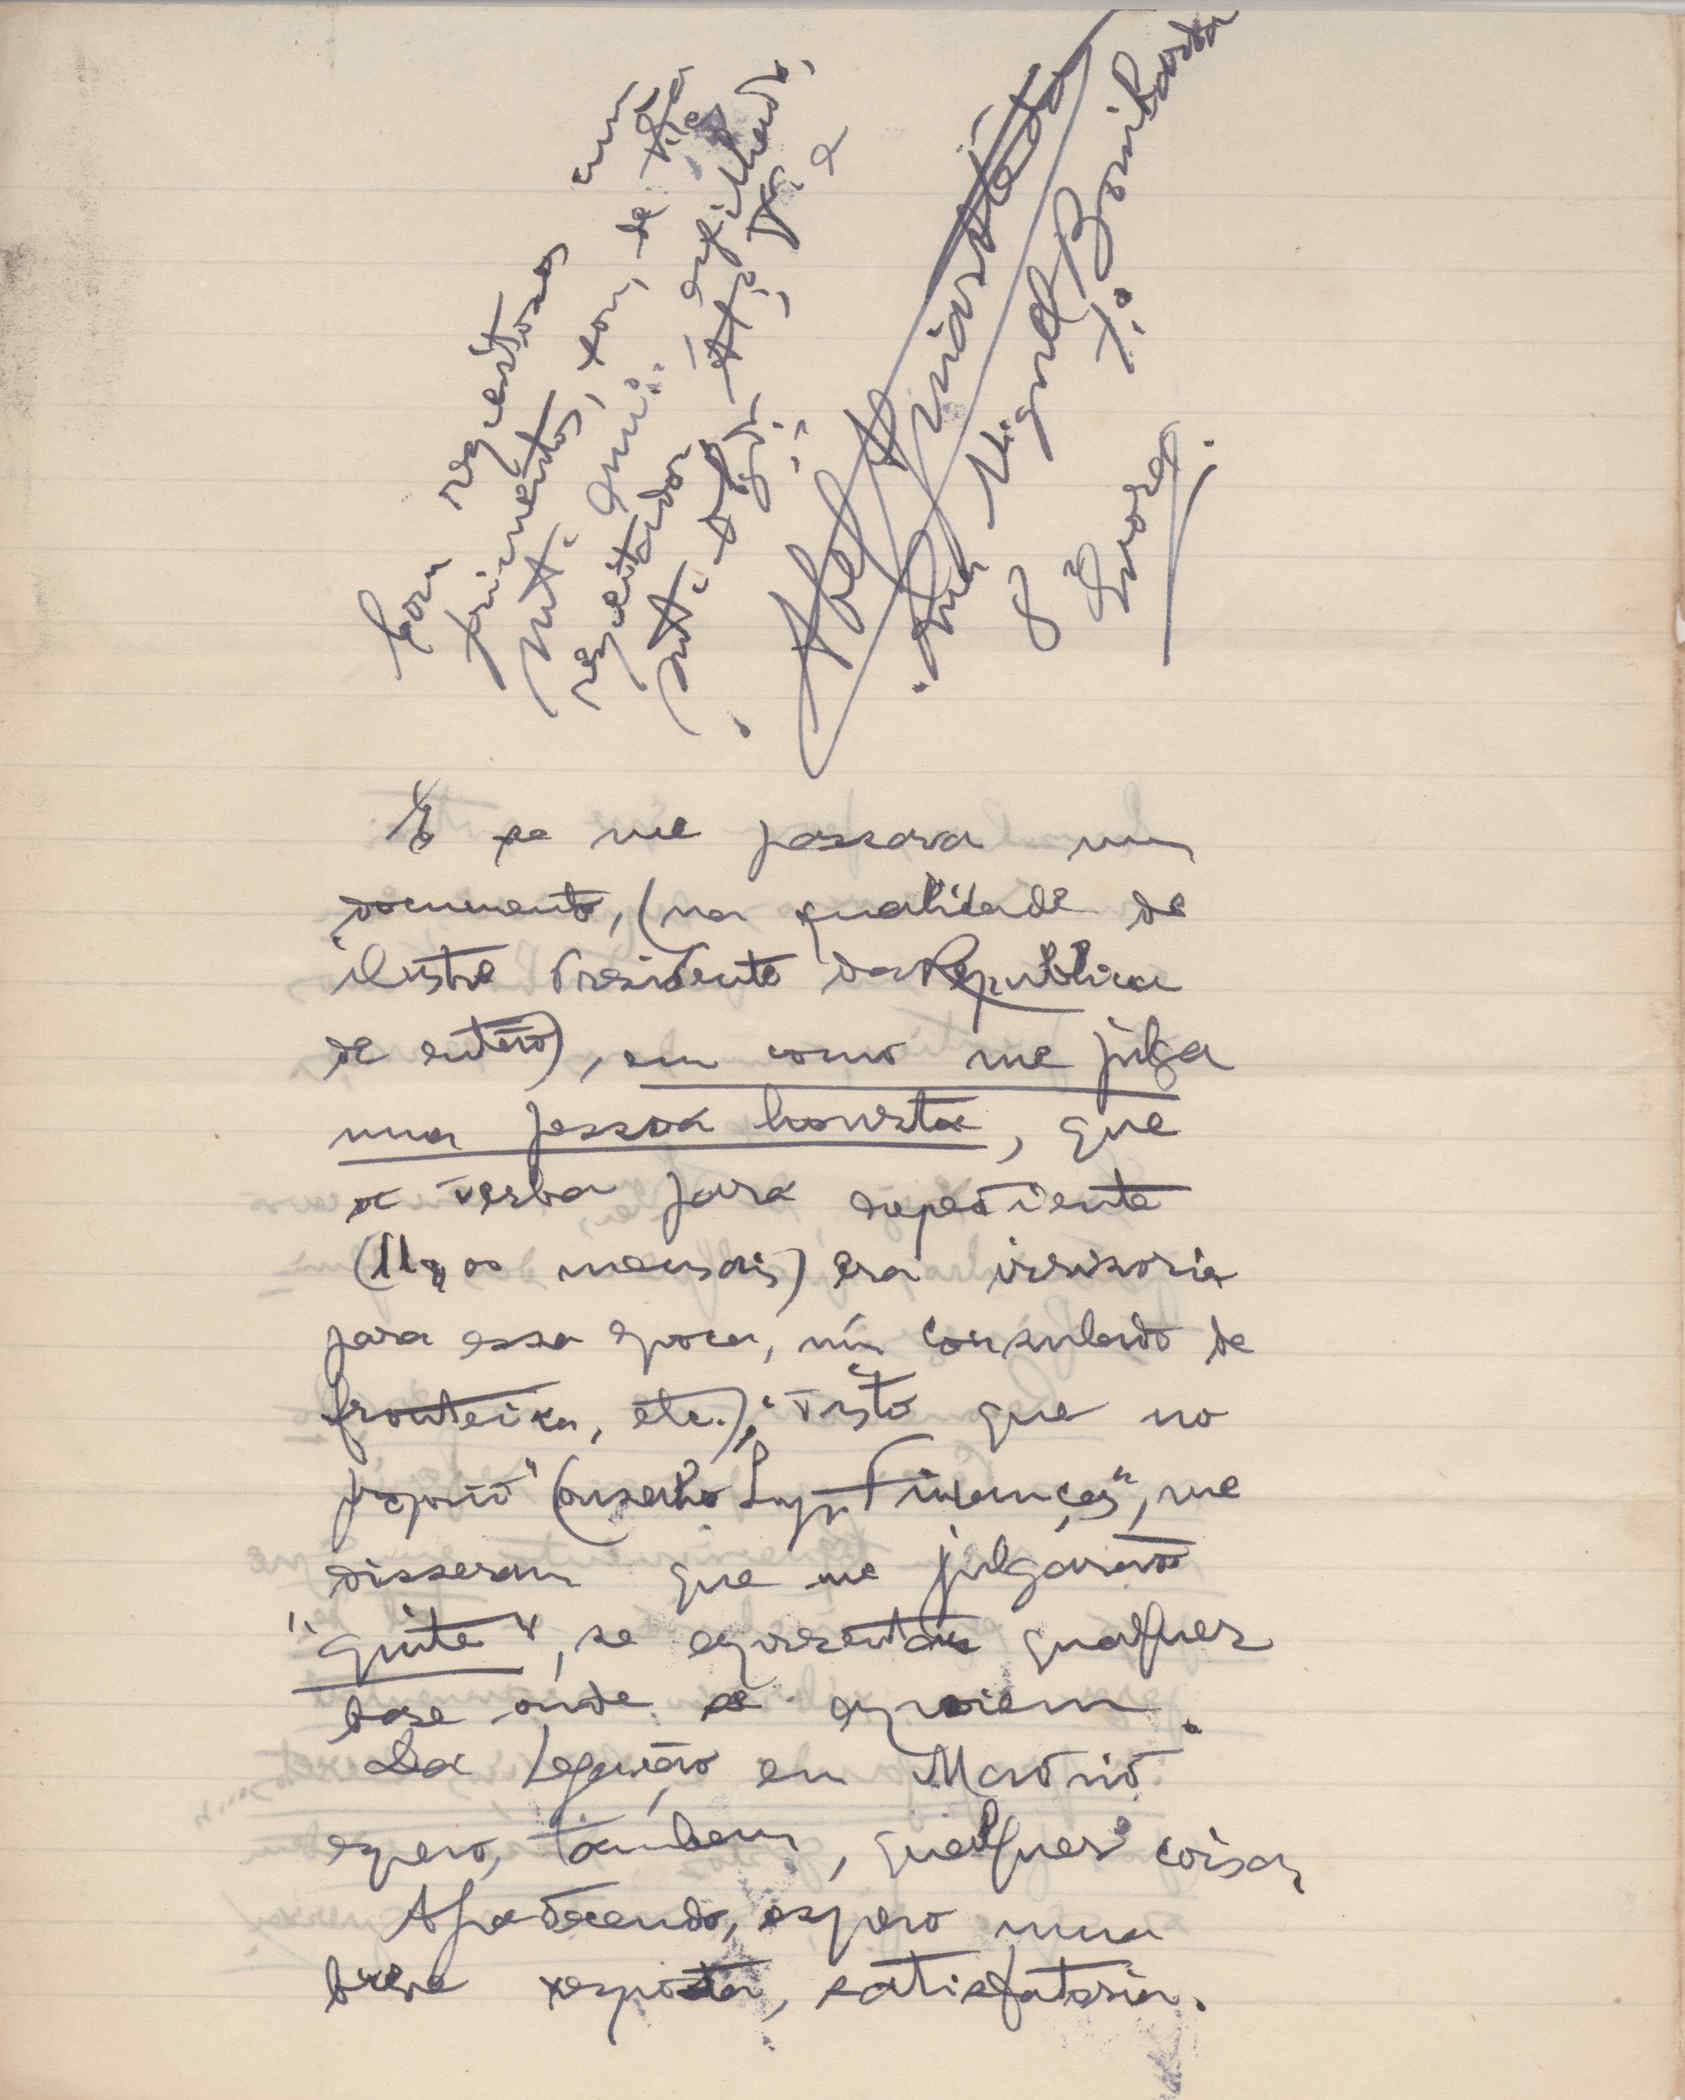 Com respeitosos cum
primentos, sou, de V. Ex.ª
mt.º
respeitador
mt.º
Rua Miguel Bombarda
8
Évora
E se me passava um
documento, (na qualidade de
ilustre Presidente da Republica
de entáo), em como me julga
uma pessoa honesta, que
a verba para expediente
mensais) era irrisoria
para essa epoca, num consulado de
fronteira, etc.), visto que no
proprio "Conselho Sup. Finanças", me
disseram que me julgarão
"quite", se apresentar qualquer
base onde se apoiem.
Da Legação em Madrid
espero, tambem, qualquer coisa,
Agradecendo, espero uma
breve resposta, satisfatoria.